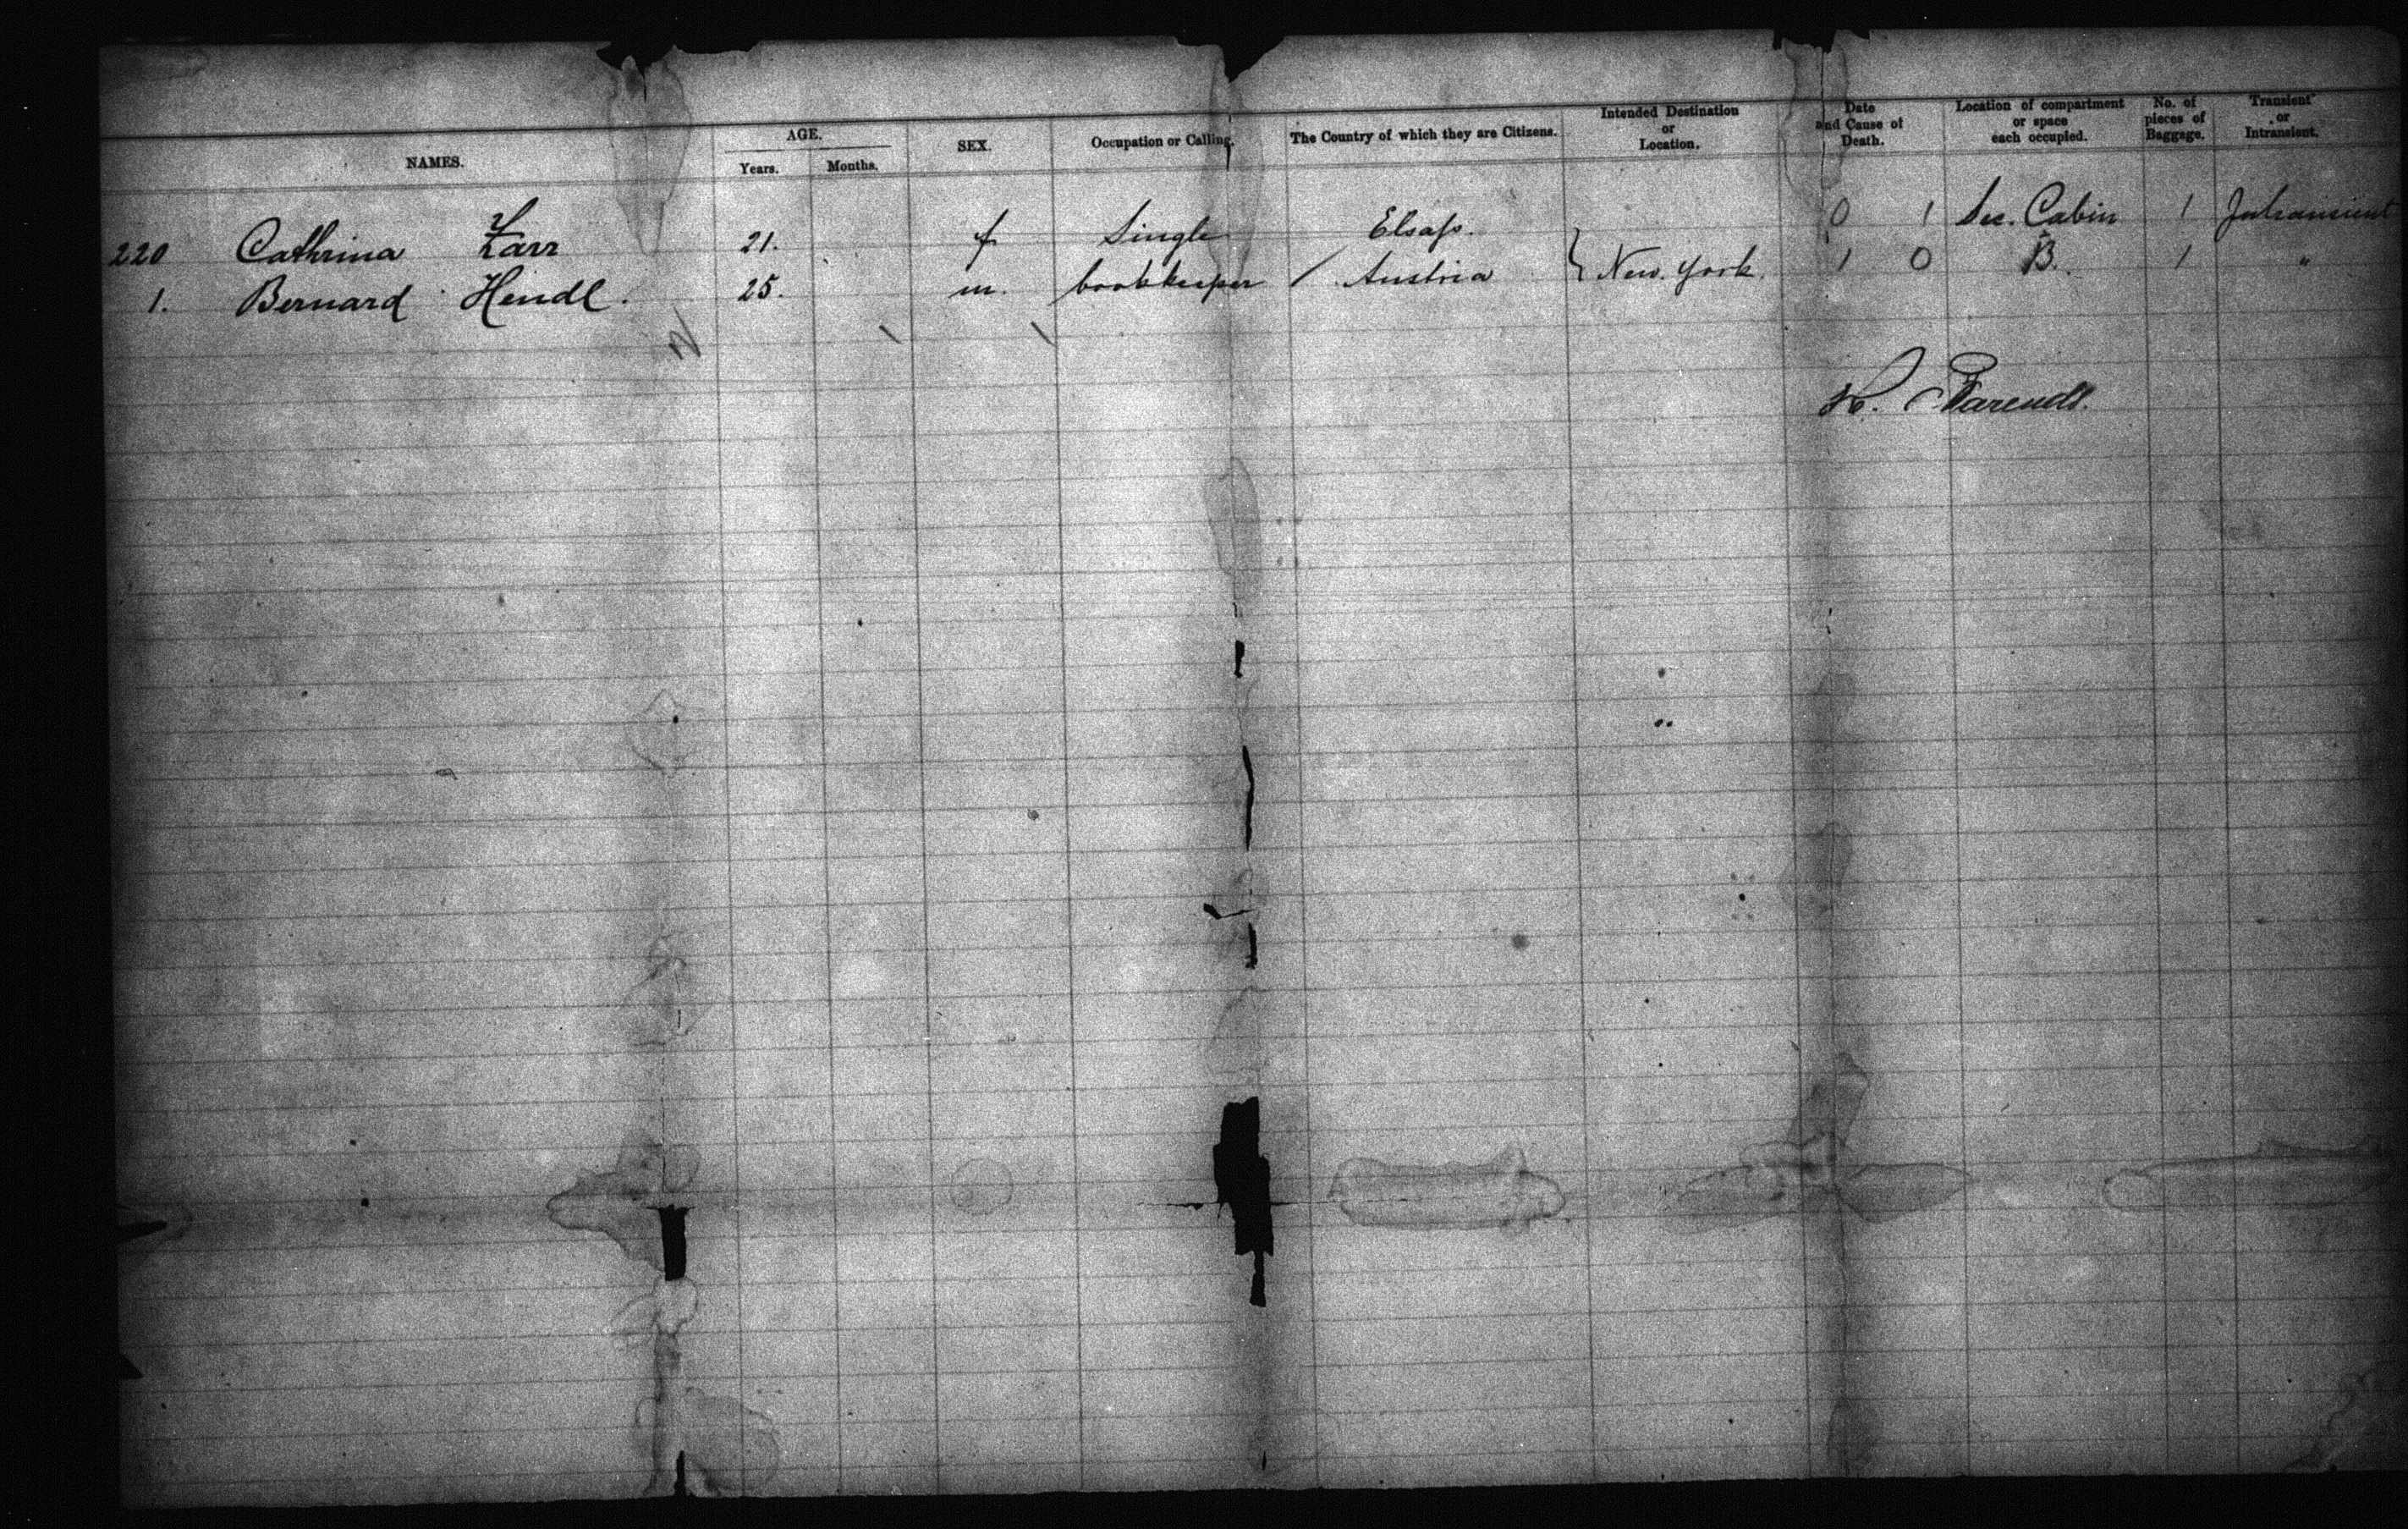 NAMES. AGE. Years. Months. SEX. Occupation or Calling. The Country of which they are Citizens. Intended Destination or Location. Date and Cause of Death. Location of compartment or space each occupied. No. of pieces of Baggage. Transient or Intransient.
220 Cathrina Zarr 21. f Single Elsaſs. 0 1 Sec. Cabin 1 Intransient
1. Bernard Hendl. 25. m. bookkeeper / Austria } New. York. 1 0 B. 1 "